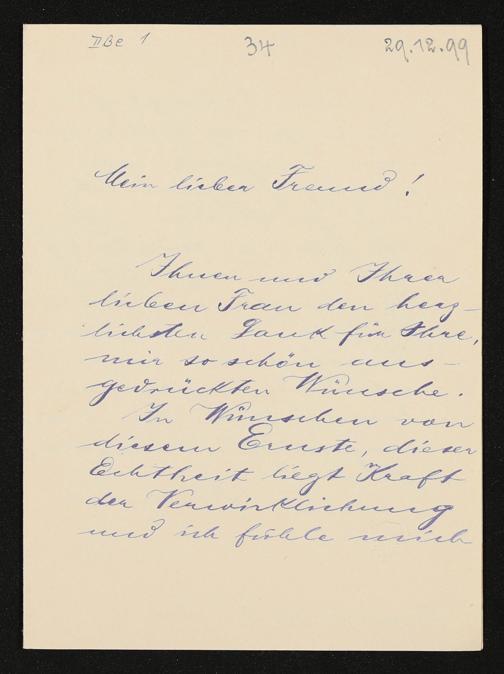 II Be 1
34
29.12.99
Mein lieber Freund!
Ihnen und Ihrer
lieben Frau den herz-
lichsten Dank für Ihre,
mir so schön aus-
gedrückten Wünsche.
In Wünschen von
diesem Ernste, dieser
Echtheit liegt Kraft
der Verwirklichung
und ich fühle mich